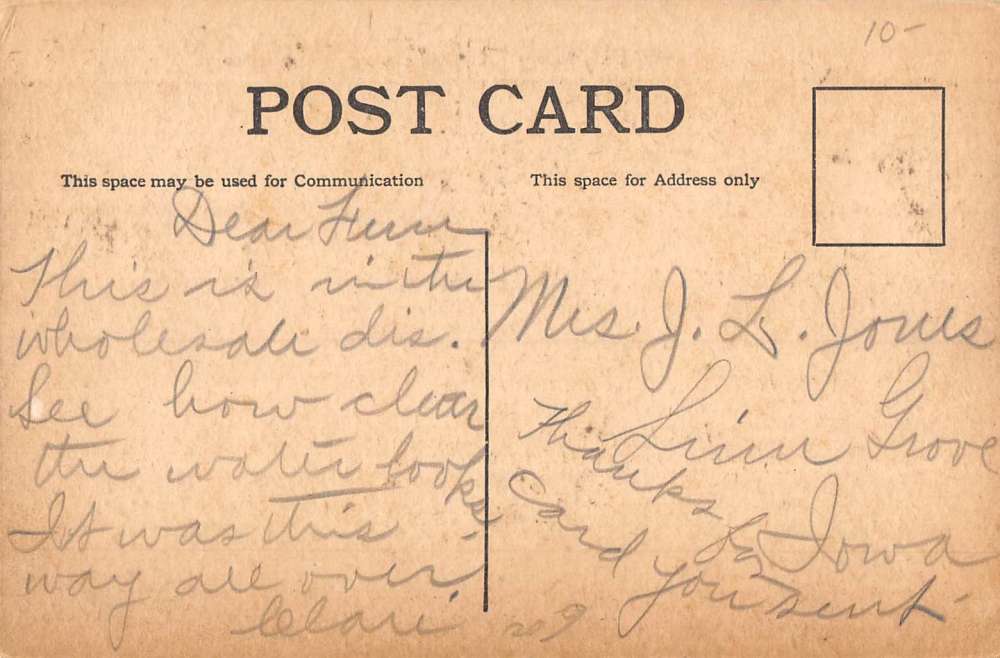 10-
POST CARD
This space may be used for Communication
This space for Address only
Dear Fern
This is in the
wholesale dis.
See how clear
the water looks
It was this
way all over
Clare
Mrs. J. L. Jones
Linn Grove
Iowa
Thanks for
Card you sent.